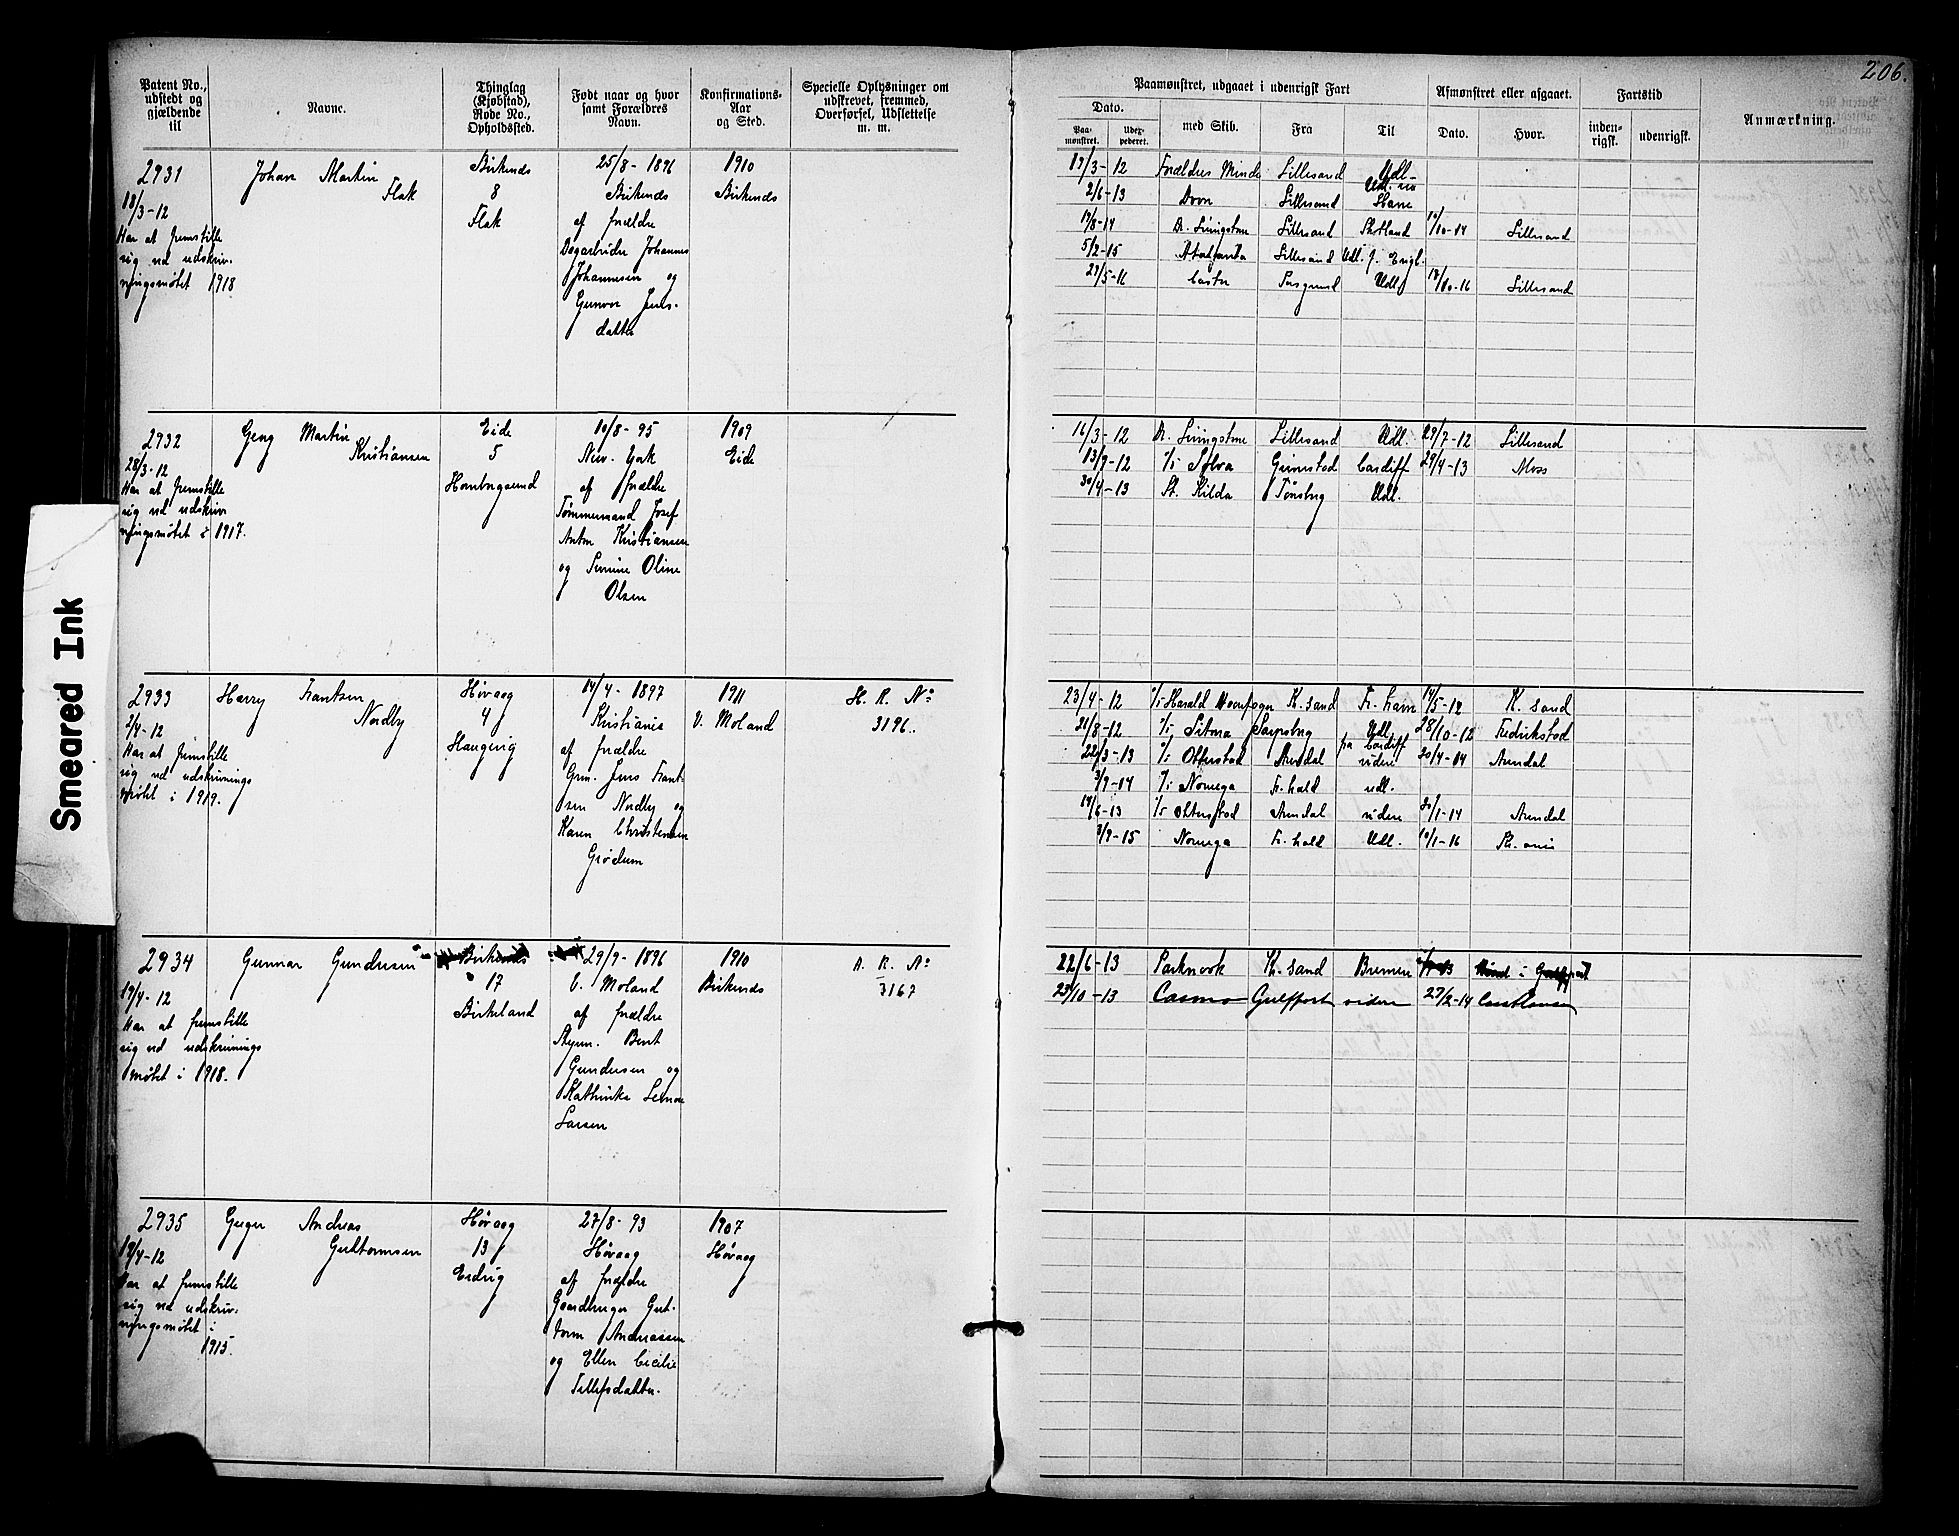 206.
Patent No., udstedt og gjældende til
Navne.
Thinglag (Kjøbstad), Rode No., Opholdssted.
Født naar og hvor samt Forældres Navn.
Konfirmations-Aar og Sted.
Specielle Oplysninger om udskrevet, fremmed, Overførsel, Udslettelse m. m.
Paamønstret, udgaaet i udenrigsk Fart
Dato.
Paa-mønstret.
Udex-pederet.
med Skib.
Fra
Til
Afmønstret eller afgaaet.
Dato.
Hvor.
Fartstid
inden-rigsk.
udenrigsk.
Anmærkning.
Smeared Ink
2931
18/3-12
Har at fremstille
sig ved udskriv-
ningsmøtet 1918
Johan Martin
Flak
Birkenes
8
Flak
25/8-1896
Birkenes
af forældre
Dagarbeider Johannes
Johannesen og
Gunvor Jens-
datter
1910
Birkenes
19/3-12 Forældres Minde Lillesand Udl-
2/6-13 Dovre Lillesand
19/8-14 D. Livingstone Lillesand Skotland /10-14 Lillesand
5/2-15 Atalanta Lillesand Udl. f. Engl.
29/5-16 Castor Porsgrund Udl. 18/10-16 Lillesand
2932
28/3-12
Har at fremstille
sig ved udskriv
ningsmøtet i 1917.
Georg Martin
Kristiansen
Eide
5
Homborgsund
10/8-95
New-York
af forældre
Tømmermand Josef
Anton Kristiansen
og Serine Oline
Olsen
1909
Eide
16/3-12 D. Livingstone Lillesand Udl. 29/7-12 Lillesand
13/9-12 S/S Sylva Grimstad Cardiff 29/4-13 Moss
30/4-13 St. Kilda Tønsberg Udl.
2933
2/4-12
Har at fremstille
sig ved udskrivnings
møtet i 1919.
Harry Frantsen
Nordby
Høvaag
4
Haugevig
14/4-1897
Kristiania
af forældre
Grm. Jens Frant-
sen Nordby og
Karen Christensen
Grødum
1911
V. Moland
H. R. No
3196.
23/4-12 S/S Harald Haarfagre K. sand Fr. havn 14/5-12 K. sand
21/8-12 S/S Sitona Sarpsborg Udl. 28/10-12 Fredrikstad
22/3-13 S/S Ottenstad Arendal fra Cardiff videre 20/4-14 Arendal
3/9-14 S/S Norwega Fr. hald udl.
14/6-13 S/S Ottenstad Arendal videre 20/1-14 Arendal
9/9-15 Norwega Fr. hald Udl. 10/1-16 Kr. ania
2934
19/4-12
Har at fremstille
sig ved udskrivnings
møtet i 1918.
Gunnar Gundersen
Birkenes
17
Birkeland
29/9-1896
V. Moland
af forældre
Styrm. Bent
Gundersen og
Kathinka Lenore
Larsen
1910
Birkenes
A. R. No
3167
22/6-13 Parknook Kr. sand Bremen i Gulfport
23/10-13 Casma Gulfport videre 27/2-14
2935
19/4-12
Har at fremstille
sig ved udskriv-
ningsmøtet i
1915.
Geger Andreas
Guttormsen
Høvaag
13
Eidvig
27/8-93
Høvaag
af forældre
Gaardbruger Gut-
torm Andreassen
og Ellen Cecilie
Tellefsdatter.
1907
Høvaag